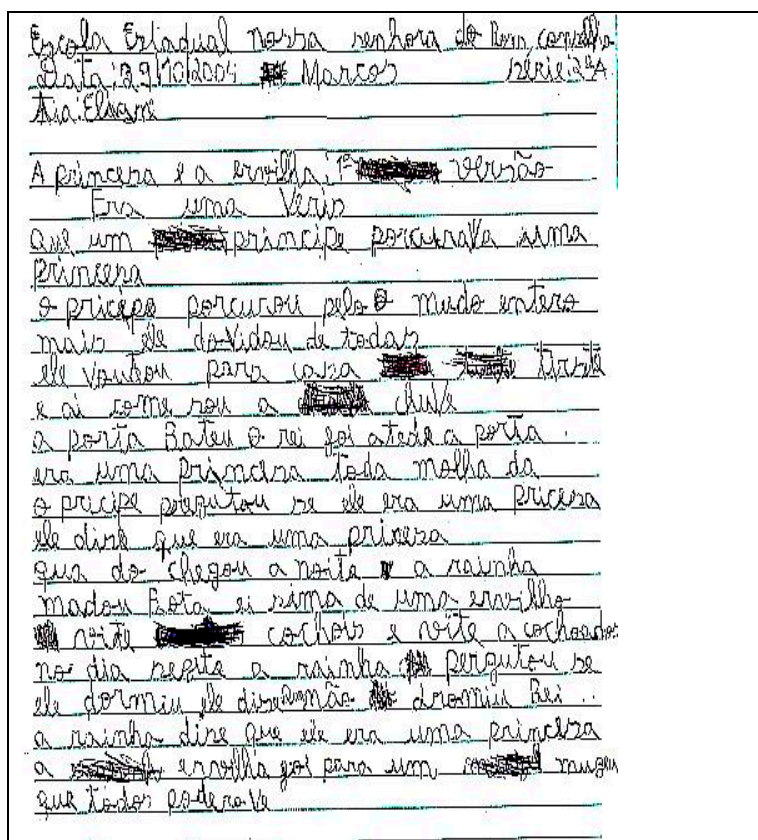 Escola Estadual nossa senhora do Bom conselho
Data: 29/10/2004 Marcos série: 2ªA
tia: Eliane
A princesa e a ervilha: 1ª versão
Era uma Veris
que um principe porcurava uma
princesa
o pricepe porcurou pelo o mudo entero
mais ele dovidou de todas
ele voutou para casa tirste
e ai come sou a chuve
a porta Bateu o rei foi atede a porta
era uma princesa toda molha da
o pricipe pregutou se ele era uma pricesa
ele dise que era uma prinesa
qua do chegou a noite a rainha
madou Bota ei sima de uma ervilho
vite cochois e vite a cochoados
no dia sepite a rainha pergutou se
ele dormiu ele dise não dromiu Bei ..
a rainha dise que ele era uma princesa
a ervilha foi para um muzeu
que todos poderave